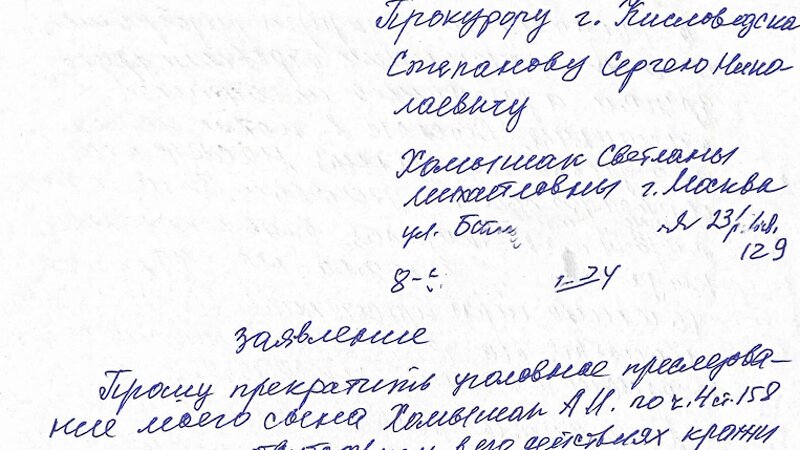 Прокурору г. Кисловодска
Степанову Сергею Нико-
лаевичу
Хомышак Светланы
Михайловны г. Москва
ул. 23/1
129
8-
заявление
Прошу прекратить уголовное преследова-
ние моего сына Хомышак А.И. по ч.4 ст.158
в его действиях кражи